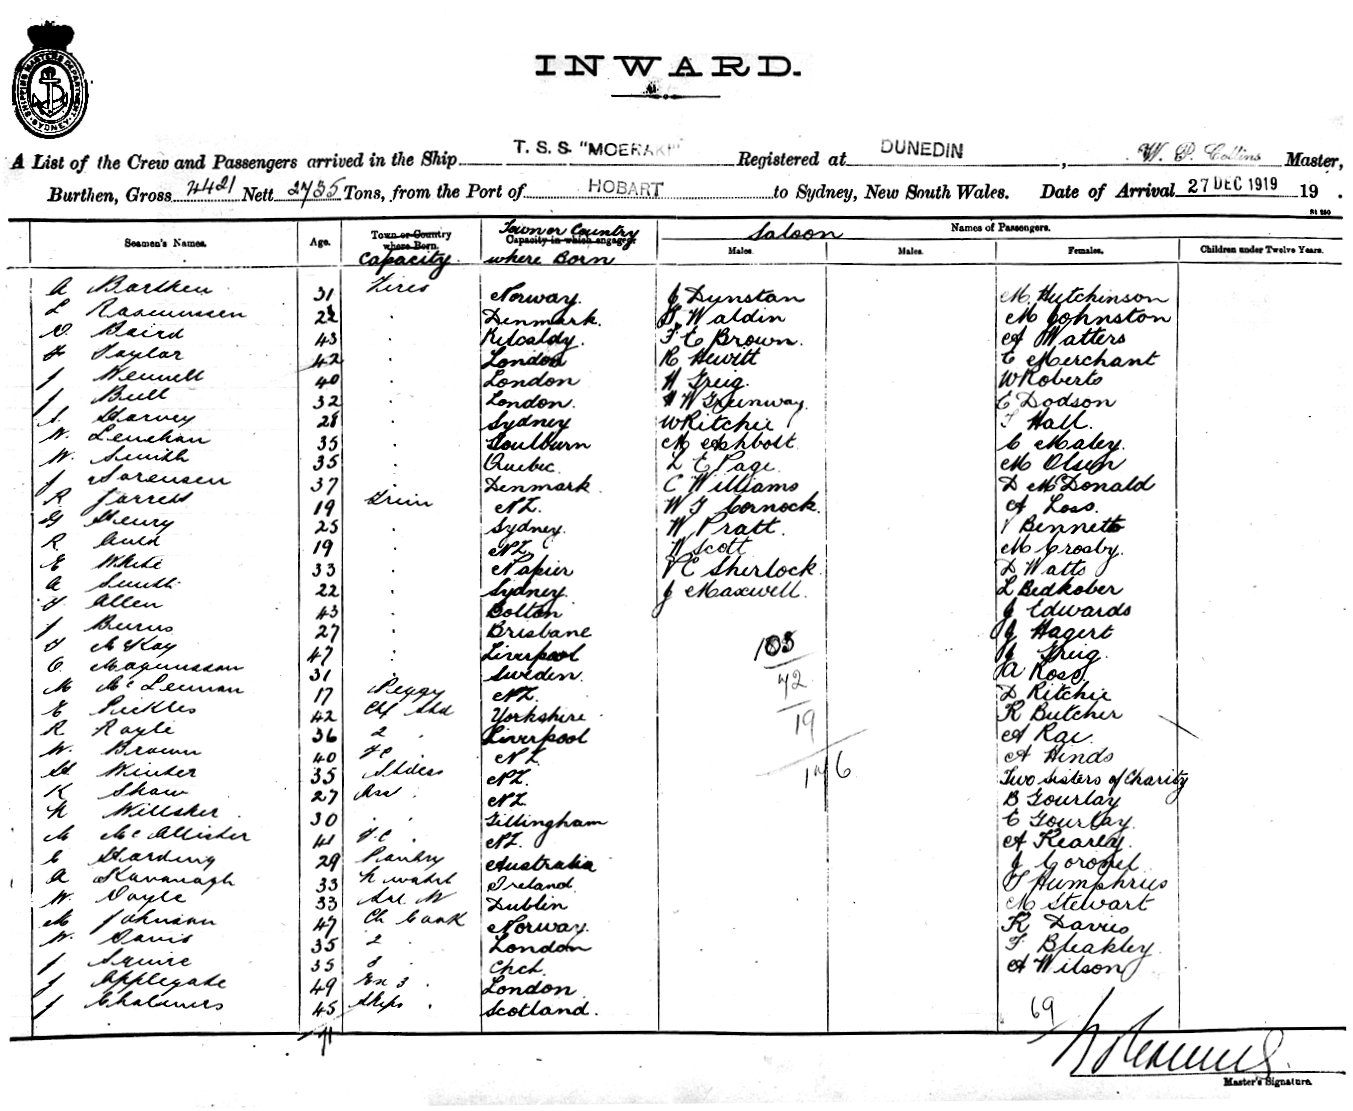 SHIPPING MASTERS DEPARTMENT SYDNEY
INWARD.
A List of the Crew and Passengers arrived in the Ship T. S. S. "MOERAKI" Registered at DUNEDIN, W. P. Collins Master,
Burthen, Gross 4421 Nett 2735 Tons, from the Port of HOBART to Sydney, New South Wales. Date of Arrival 27 DEC 1919 19 .
Seamen's Names. Age. Town or Country where Born. Capacity Capacity in which engaged. Town or Country where Born Saloon Names of Passengers.
Males. Males. Females. Children under Twelve Years.
A 31 Fires Norway. J Dunstan M. Hutchinson
L Rasmussen 22 Denmark. Waldin M Johnston
D Baird 43 F E Brown. A Watters
Taylor 42 London R Hewitt E Merchant
J Wennell 40 London W Greig. W Roberts
J Bull 32 London. W Greenway. E Dodson
S. Harvey 28 Sydney W Ritchie F Hall.
W. Lenehan 35 Goulburn M Ashbolt C Maley.
W. Smith 35 Quebec. L E Page. M Olsen
J Sorensen 37 Denmark. C Williams D McDonald
R Jarrett 19 Trim NZ. W G Cornock. A Loss.
G Henry 25 Sydney. W Pratt. V Bennetts
R Auld 19 NZ W Scott M Crosby.
E White 33 Napier V C Sherlock. D Watts
A Smith 22 Sydney. J Maxwell. L Bedkober
Allen 43 Bolton J Edwards
J Burns 27 Brisbane J Hagert
McKay 47 Liverpool 105 J Greig.
C Magnusson 31 Sweden. A Ross.
M McLennan 17 Peggy NZ. 72 D Ritchie
E Pickles 42 Yorkshire. R Butcher
R Royle 36 2 Liverpool 19 A Rae.
W. Brown 40 NZ A Hinds
Winter 35 NZ. 176 Two Sisters of Charity
K Shaw 27 Ass NZ. B Gourlay
30 Gillingham E Gourlay.
M McAllister 41 NZ. A Kearley.
C Harding 29 Pantry Australia J Coronel
A Kavanagh 33 Ireland. F Humphries
W. Doyle 33 Dublin M Stewart
M Johnson 47 Ch Cook Norway. K Davies
W. Davis 35 2 London F Bleakley.
J Squire 35 3 Chch. A Wilson
J Applegate 49 London
J Chalmers 45 Ships Scotland.
71 69
Master's Signature.